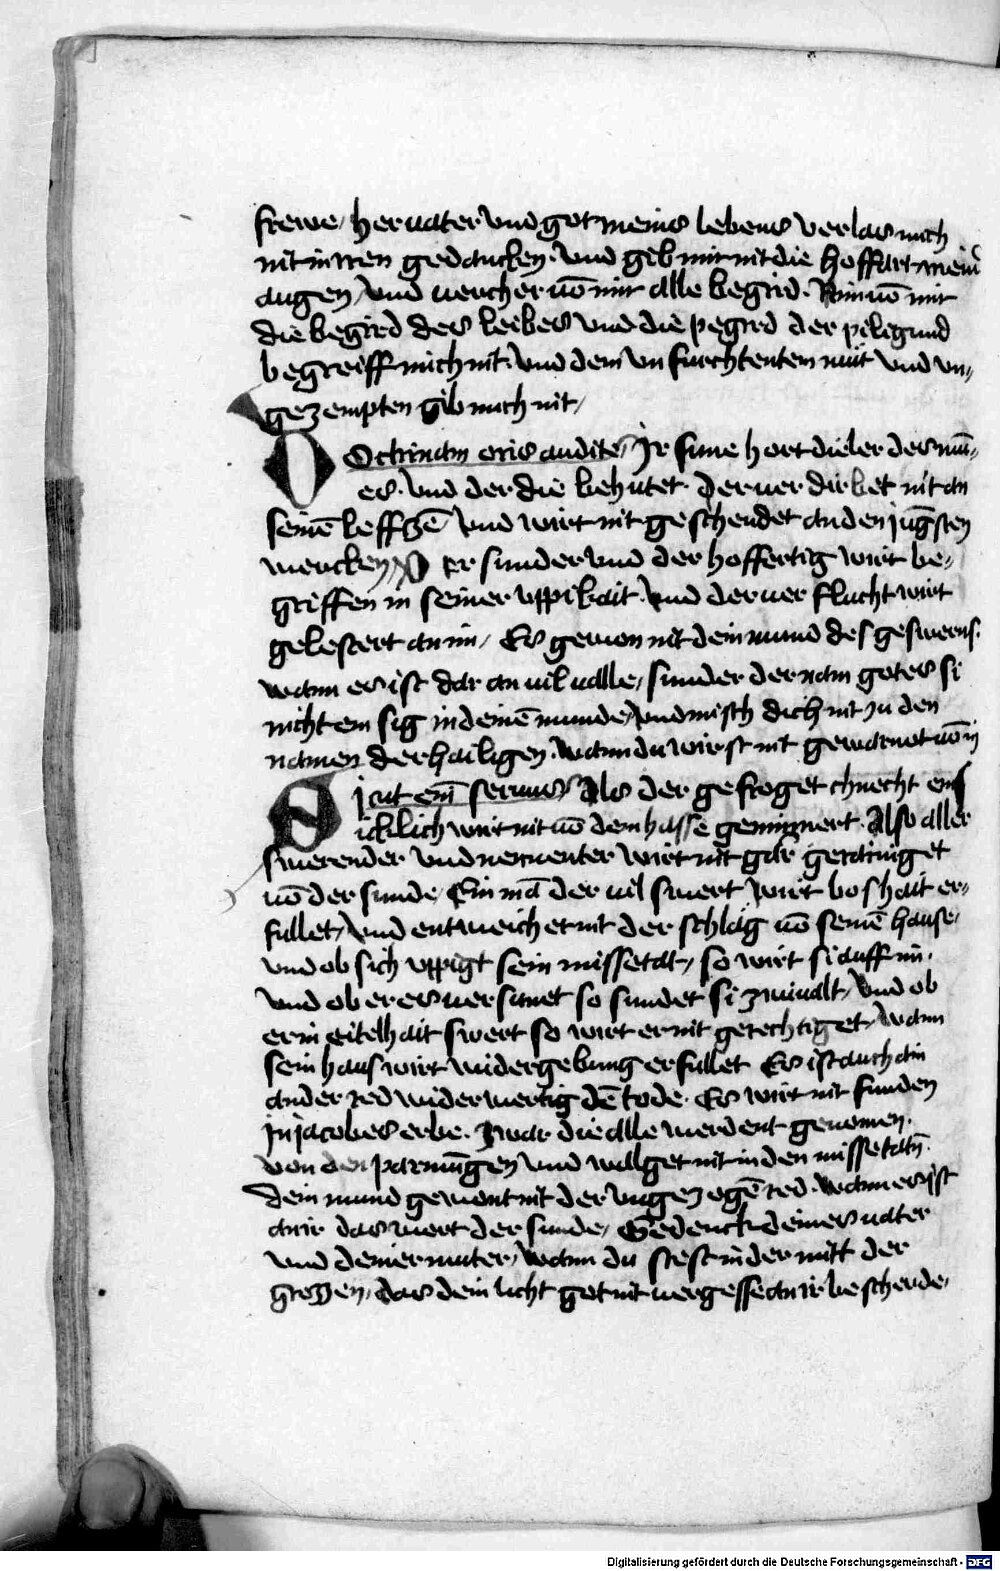 frewe / her vater vnd got meins lebens verlas mich
nit in iren gedancken · vnd gib mir nit die hoffart meinr
augen / vnd vercher vō mir alle begird · Nim vō mir
die begird des leibes vnd die pegird der
begreiff mich nit · vnd dem vn furchtenten mūt vnd vn=
gezempten gib mich nit /
DOctrinam oris audite / Ir sune hort die ler des mū=
es · vnd der die behūtet · der verdirbet nit an
seinē leffczē vnd wirt nit geschendet an den
wercken / Der sunder vnd der hoffertig wirt be=
griffen in seiner vppikait · vnd der ver flucht wirt
gelestert an im / Es gewon nit dein mund des swerns ·
wann es ist dar an vil valle / sunder der nam gotes si
nicht ein sig in deinē munde / vnd misch dich nit zu den
namen der hailigen · wann du wirst nit vō in
SIcut enī seruus Als der gefroget chnecht
icklich wirt nit vō dem hasse geminnert · Also aller
swerender vnd wirt nit gar gerainiget
vō der sunde / Ein mā der vil swert wirt boshait er=
fullet / vnd entweichet nit der schlag vō seinē hause /
vnd ob sich vppigt sein missetat / so wirt si auff im ·
vnd ob er es versūmet so sundet si zwiualt / vnd ob
er in eitelhait swert so wirt er nit gerechtiget / wann
sein haus wirt widergebung erfullet Es ist auch ain
ander red widerwertig dē tode · Es wirt nit funden
in jacobes erbe · zwar die alle werdent genomen ·
von den parmūgen vnd walget nit in den missetatn̄ ·
dein mund gewont nit der vngezogē red · wann es ist
an ir das wort der sunde / Gedenck deines vater
vnd deiner muter / wann du stest in der mitt der
grossen / das dein licht got nit vergesse an ir bescherde /
Digitalisierung gefördert durch die Deutsche Forschungsgemeinschaft - DFG